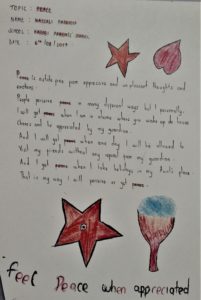 TOPIC : PEACE
NAME :
SCHOOL :
DATE : 6th / 08 / 2017
Peace is outside pain, pain appreciate and unpleasant thoughts and
emotions.
People perceive peace in many different ways but I personally:
I will get peace when I am in a home where you wake up do house
Chores and be appreciated by my guardian.
And I will get peace when one day I will be allowed to
Visit my friends without any repeat from my guardian.
And I get peace when I take holidays in my Aunt's place.
That is my way I will perceive or get peace.
Feel Peace when appreciated